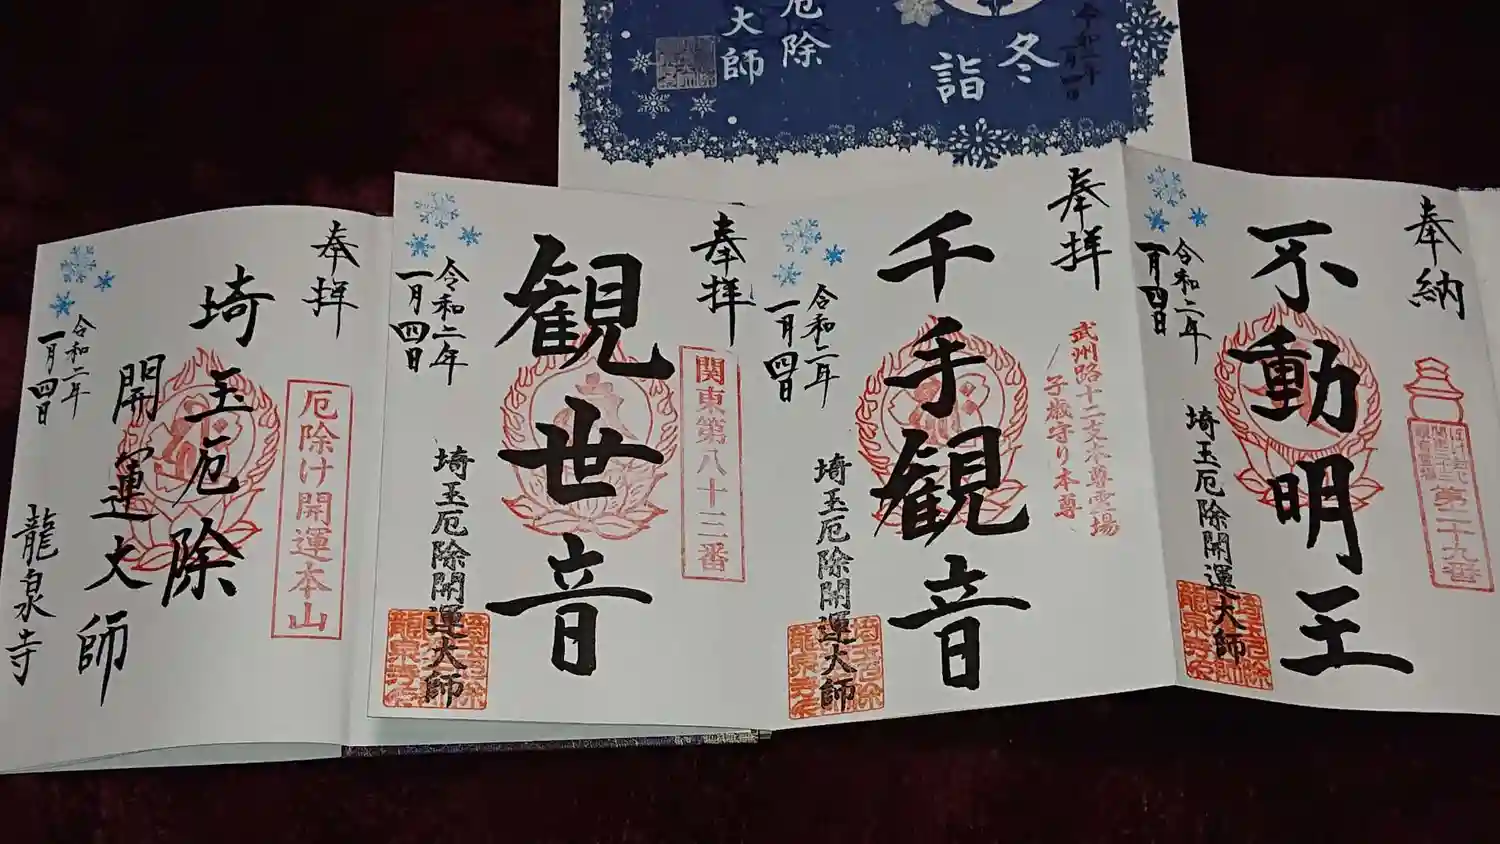 冬
詣
厄除
大師
奉納
不動明王
第二十九番
令和二年
一月四日
埼玉厄除開運大師
奉拝
千手観音
武州路十二支本尊霊場
子歳守り本尊
令和二年
一月四日
埼玉厄除開運大師
奉拝
観世音
関東第八十三番
令和二年
一月四日
埼玉厄除開運大師
奉拝
埼玉厄除
開運大師
厄除け開運本山
令和二年
一月四日
龍泉寺